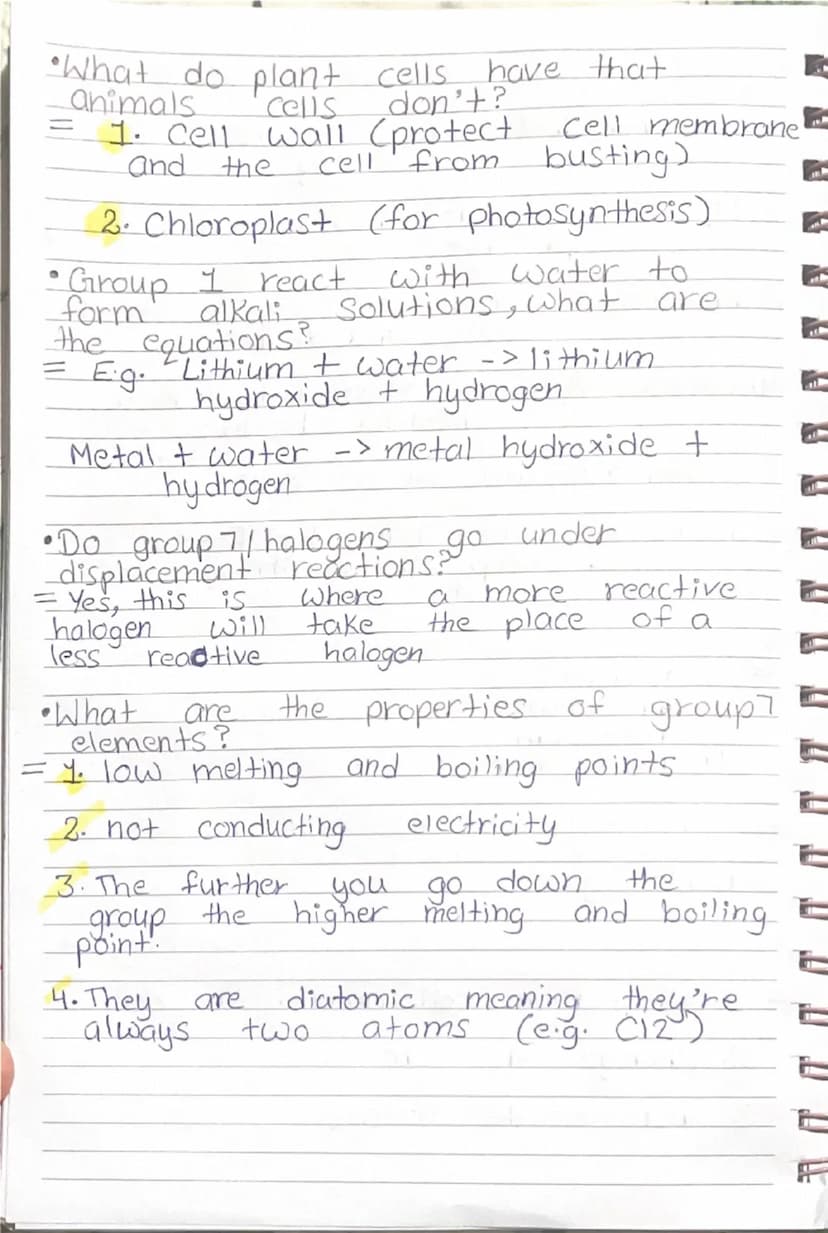 •What do plant cells have that
animals cells don't?
= 1. Cell wall (protect cell membrane
and the cell from busting)
2. Chloroplast (for photosynthesis)
•Group 1 react with water to
form alkali solutions, what are
the equations?
= E.g. Lithium + water -> lithium
hydroxide + hydrogen
Metal + water -> metal hydroxide +
hydrogen
•Do group 7/halogens go under
displacement reactions?
= Yes, this is where a more reactive
halogen will take the place of a
less reactive halogen
•What are the properties of group 7
elements?
= 1. low melting and boiling points
2. not conducting electricity
3. The further you go down the
group the higher melting and boiling
point.
4. They are diatomic meaning they're
always two atoms (e.g. Cl2)